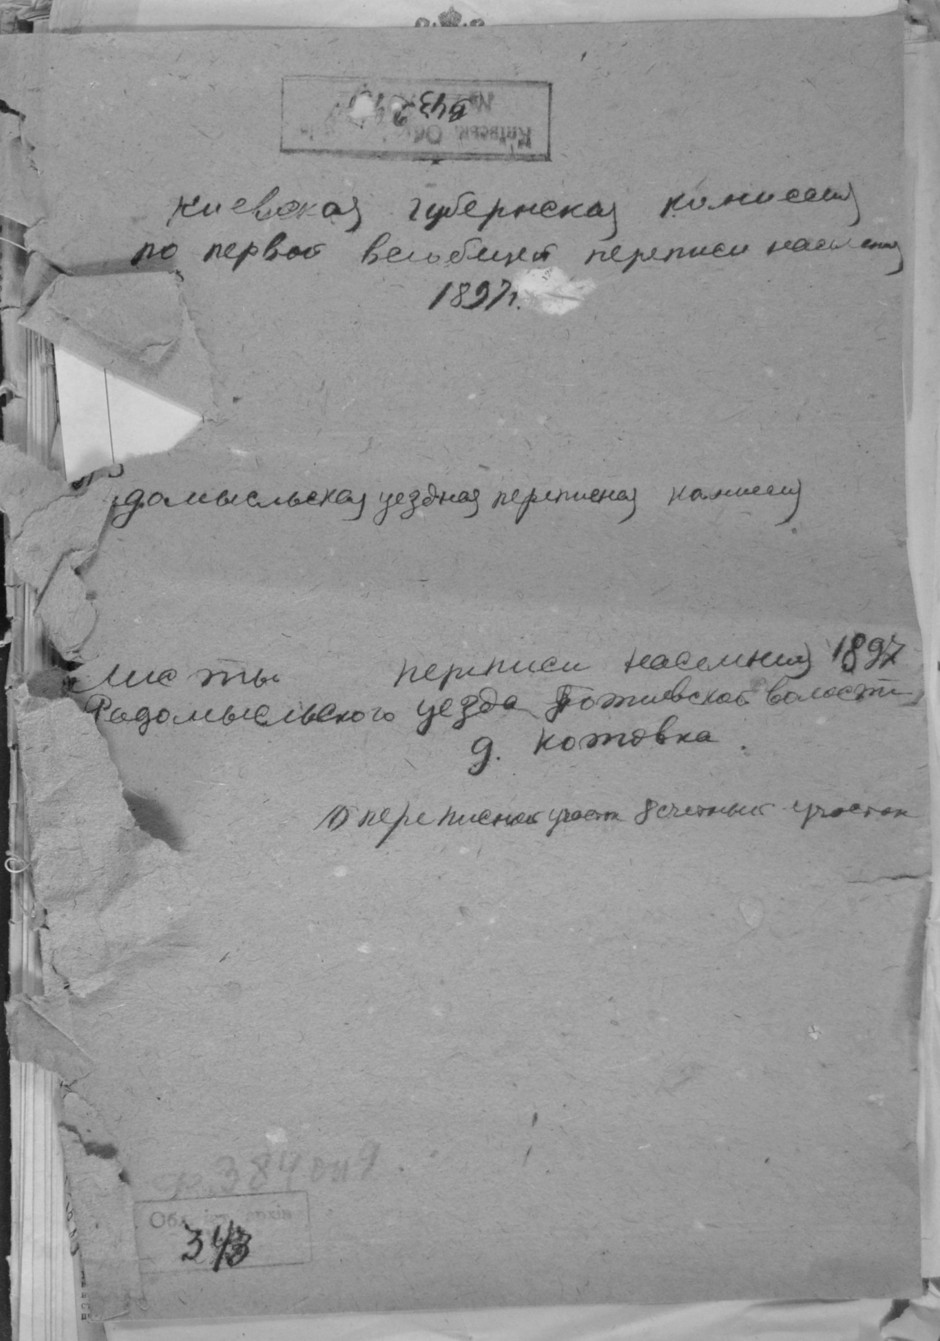 543
Київськ. Об
№
Киевская губернская комиссия
по первой всеобщей переписи населения
1897г.
домысльская уездная переписная комиссия
Листы переписи населения 1897
Радомысльского уезда волости
д. Котовка.
переписной участ. 8 счетный участок
ф. 384 оп 9
Обл. архів
343